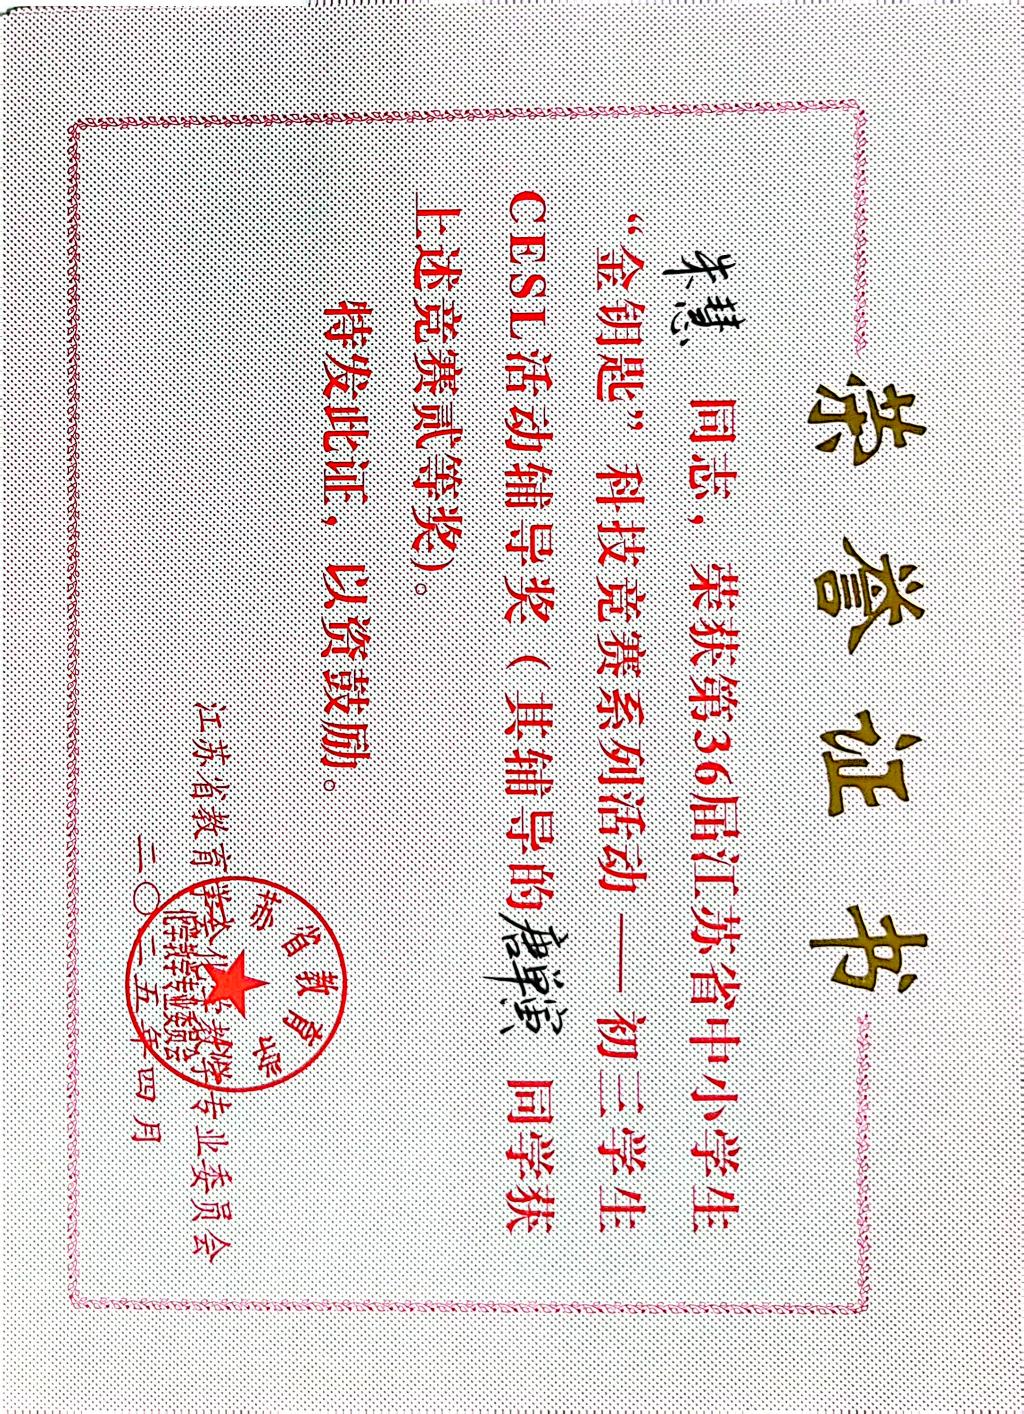 荣誉证书
朱慧 同志，荣获第36届江苏省中小学生
“金钥匙”科技竞赛系列活动——初三学生
CESL活动辅导奖（其辅导的 同学获
上述竞赛贰等奖）。
特发此证，以资鼓励。
江苏省教育学会化学教学专业委员会
二〇二五年四月